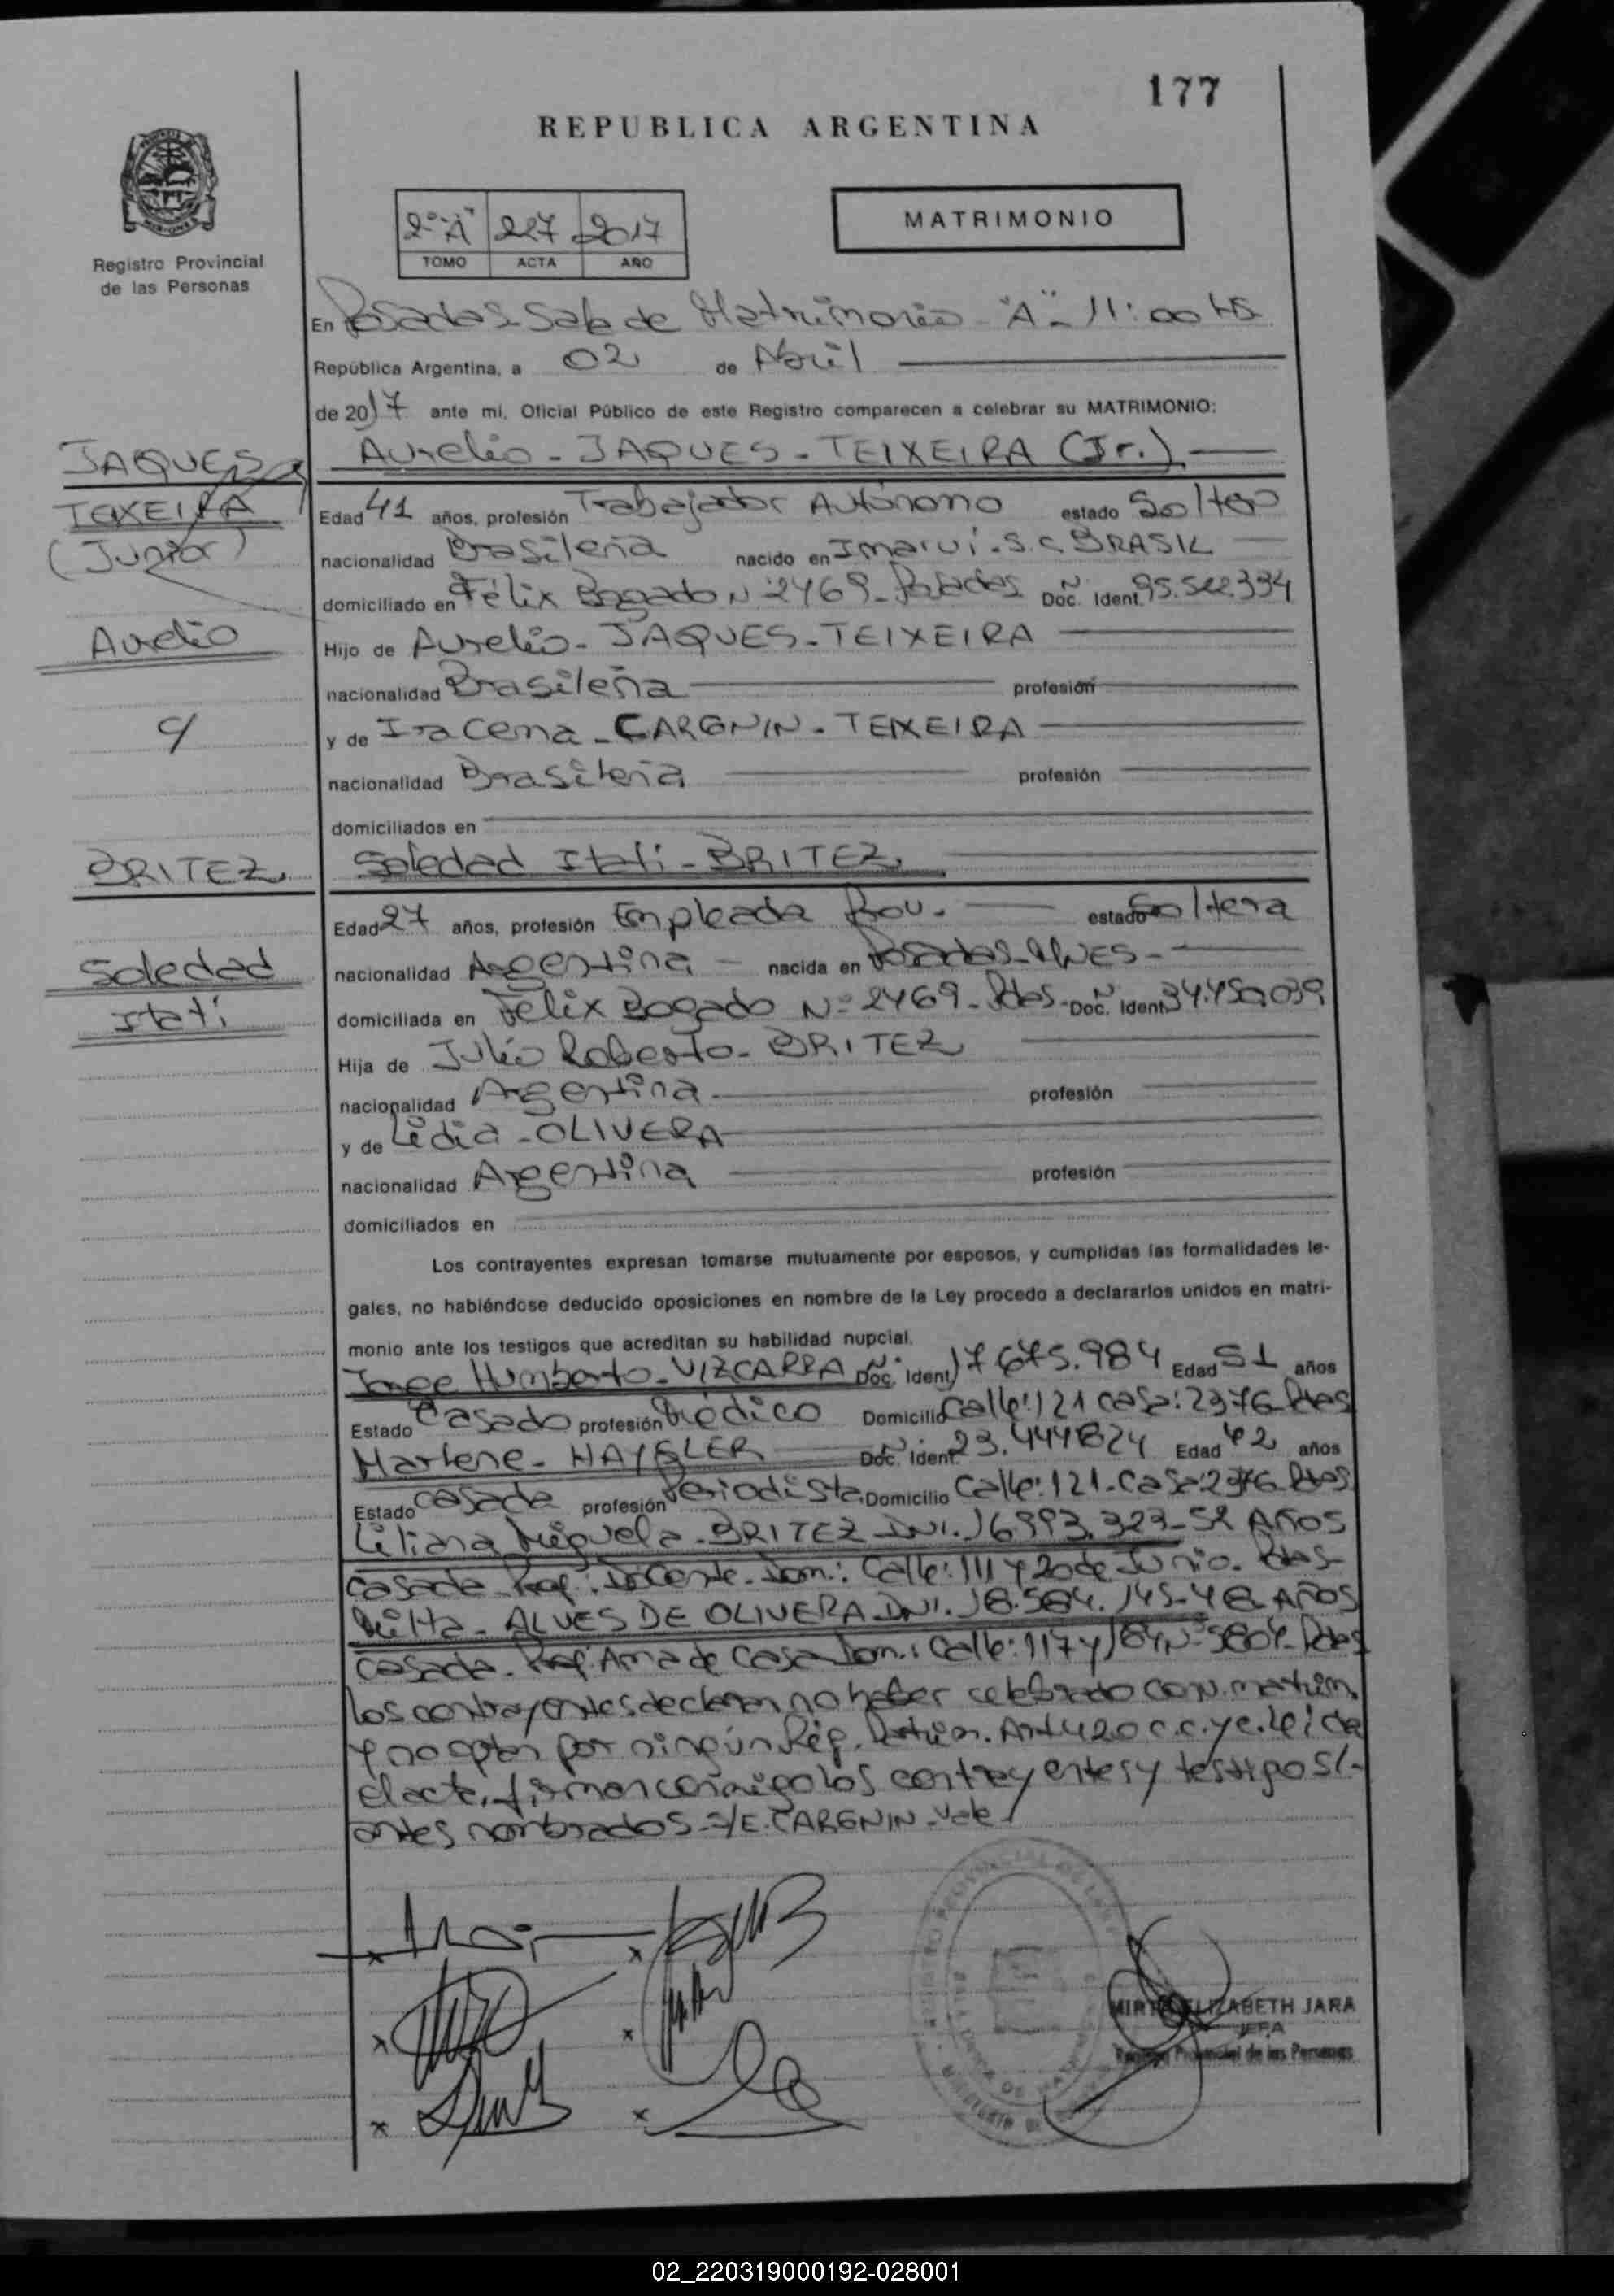 177
REPUBLICA ARGENTINA
Registro Provincial
de las Personas
2º "A" 227 2017
TOMO ACTA AÑO
MATRIMONIO
En Posadas - Sala de Matrimonio - "A" - 11:00 Hs
República Argentina, a 02 de Abril
de 2017 ante mí, Oficial Público de este Registro comparecen a celebrar su MATRIMONIO:
JAQUES
TEXEIRA
(Junior)
Aurelio
c/
BRITEZ
Soledad
Itatí
Aurelio - JAQUES - TEIXEIRA (Jr.)
Edad 41 años, profesión Trabajador Autónomo estado Soltero
nacionalidad Brasileña nacido en Imaruí - S.C BRASIL
domiciliado en Félix Bogado Nº 2469 - Posadas Doc. Ident. 95.522.334
Hijo de Aurelio - JAQUES - TEIXEIRA
nacionalidad Brasileña profesión
y de Iracema - CARGNIN - TEIXEIRA
nacionalidad Brasileña profesión
domiciliados en
Soledad Itatí - BRITEZ
Edad 27 años, profesión Empleada estado Soltera
nacionalidad Argentina nacida en Posadas - Mnes -
domiciliada en Félix Bogado Nº 2469 - Pdas - Doc. Ident. 34.450.039
Hija de Julio Roberto - BRITEZ
nacionalidad Argentina profesión
y de Lidia - OLIVERA
nacionalidad Argentina profesión
domiciliados en
Los contrayentes expresan tomarse mutuamente por esposos, y cumplidas las formalidades le-
gales, no habiéndose deducido oposiciones en nombre de la Ley procedo a declararlos unidos en matri-
monio ante los testigos que acreditan su habilidad nupcial.
Jorge Humberto - VIZCARRA Doc. Ident. 17.675.984 Edad 51 años
Estado Casado profesión Médico Domicilio Calle: 121 casa: 2376 Pdas
Marlene - HAYSLER Doc. Ident. 23.444824 Edad 42 años
Estado Casada profesión Periodista Domicilio Calle: 121 - Casa 2376 Pdas
Liliana Miguela - BRITEZ DNI. 16993.323 - 52 AÑOS
Casada - Prof.: Docente. Dom.: Calle: 111 y 20 de Junio. Pdas -
ALVES DE OLIVERA DNI. 18.584.145 - 48 AÑOS
Casada - Prof. Ama de Casa Dom.: Calle: 117 y 184 Nº 5804 - Pdas
los contrayentes declaran no haber celebrado conv. matrim.
y no optan por ningún Rég. Patrim. Art 420 c.c. y c. leída
el acta, firman conmigo los contrayentes y testigos
antes nombrados - S/E. CARGNIN - Vale
MIRTA ELIZABETH JARA
JEFA
Registro Provincial de las Personas
02_220319000192-028001